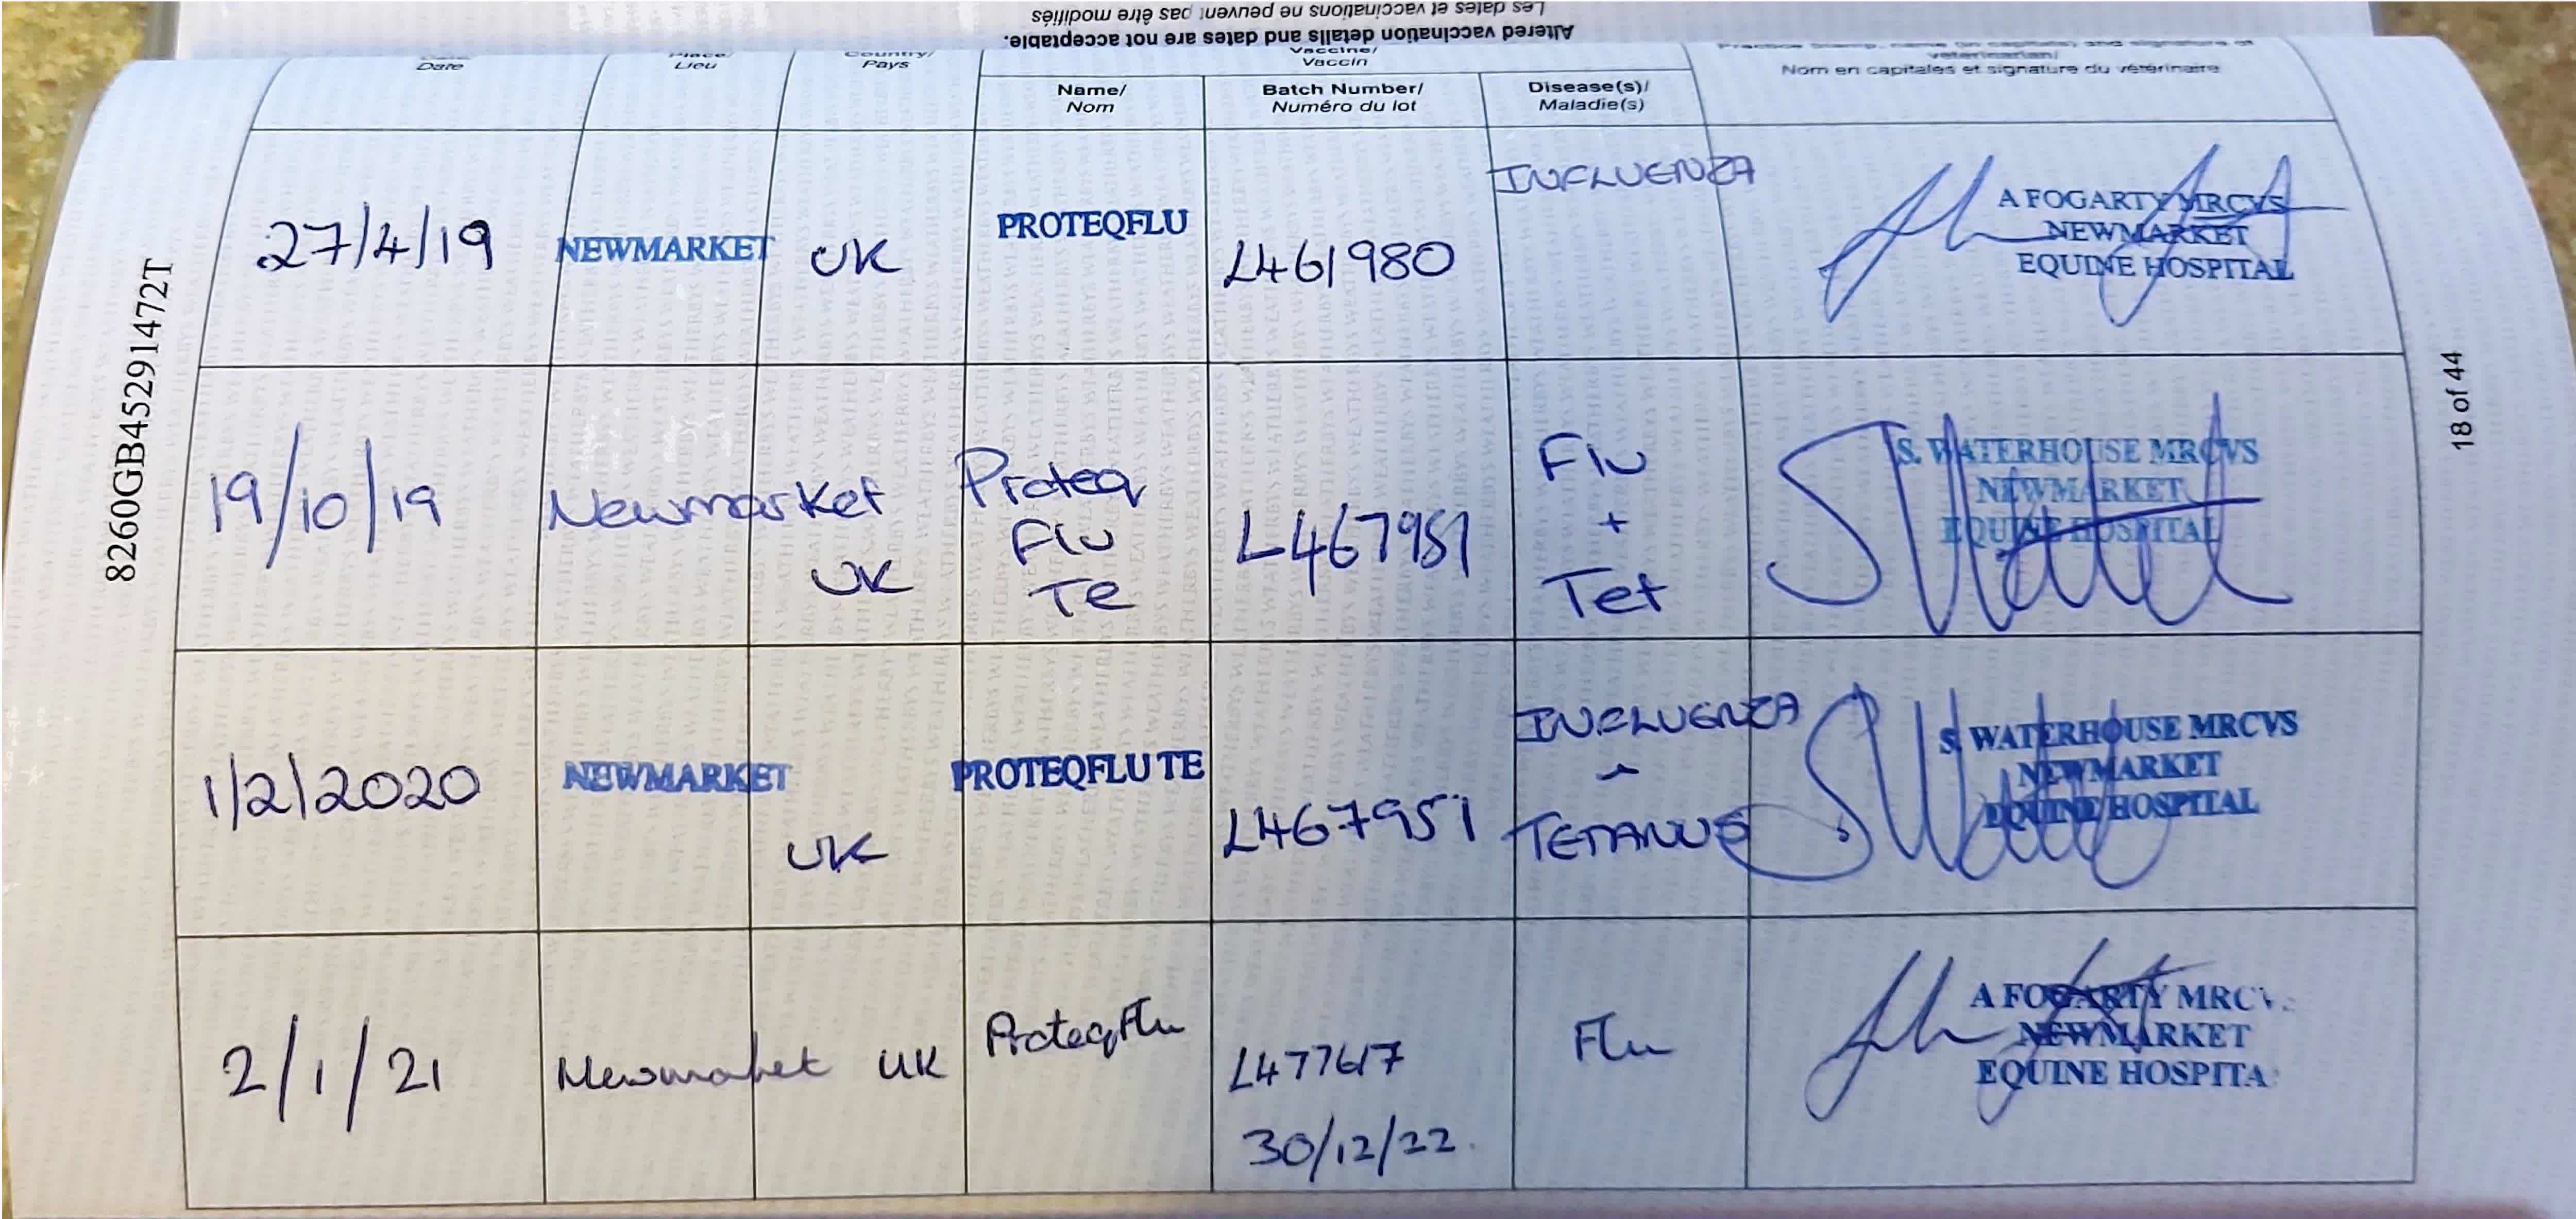 Les dates et vaccinations ne peuvent pas être modifiés
Altered vaccination details and dates are not acceptable.
Date
Place/
Lieu
Country/
Pays
Vaccine/
Vaccin
veterinarian/
Nom en capitales et signature du vétérinaire
Name/
Nom
Batch Number/
Numéro du lot
Disease(s)/
Maladie(s)
27/4/19
NEWMARKET
UK
PROTEQFLU
L461980
INFLUENZA
A FOGARTY MRCVS
NEWMARKET
EQUINE HOSPITAL
19/10/19
Newmarket
UK
Proteq
Flu
Te
L467951
Flu
+
Tet
S. WATERHOUSE MRCVS
NEWMARKET
EQUINE HOSPITAL
1/2/2020
NEWMARKET
UK
PROTEQFLU TE
L467951
INFLUENZA
TETANUS
S. WATERHOUSE MRCVS
NEWMARKET
EQUINE HOSPITAL
2/1/21
Newmarket
UK
ProteqFlu
L477617
30/12/22.
Flu
A FOGARTY MRCV
NEWMARKET
EQUINE HOSPITA
8260GB45291472T
18 of 44